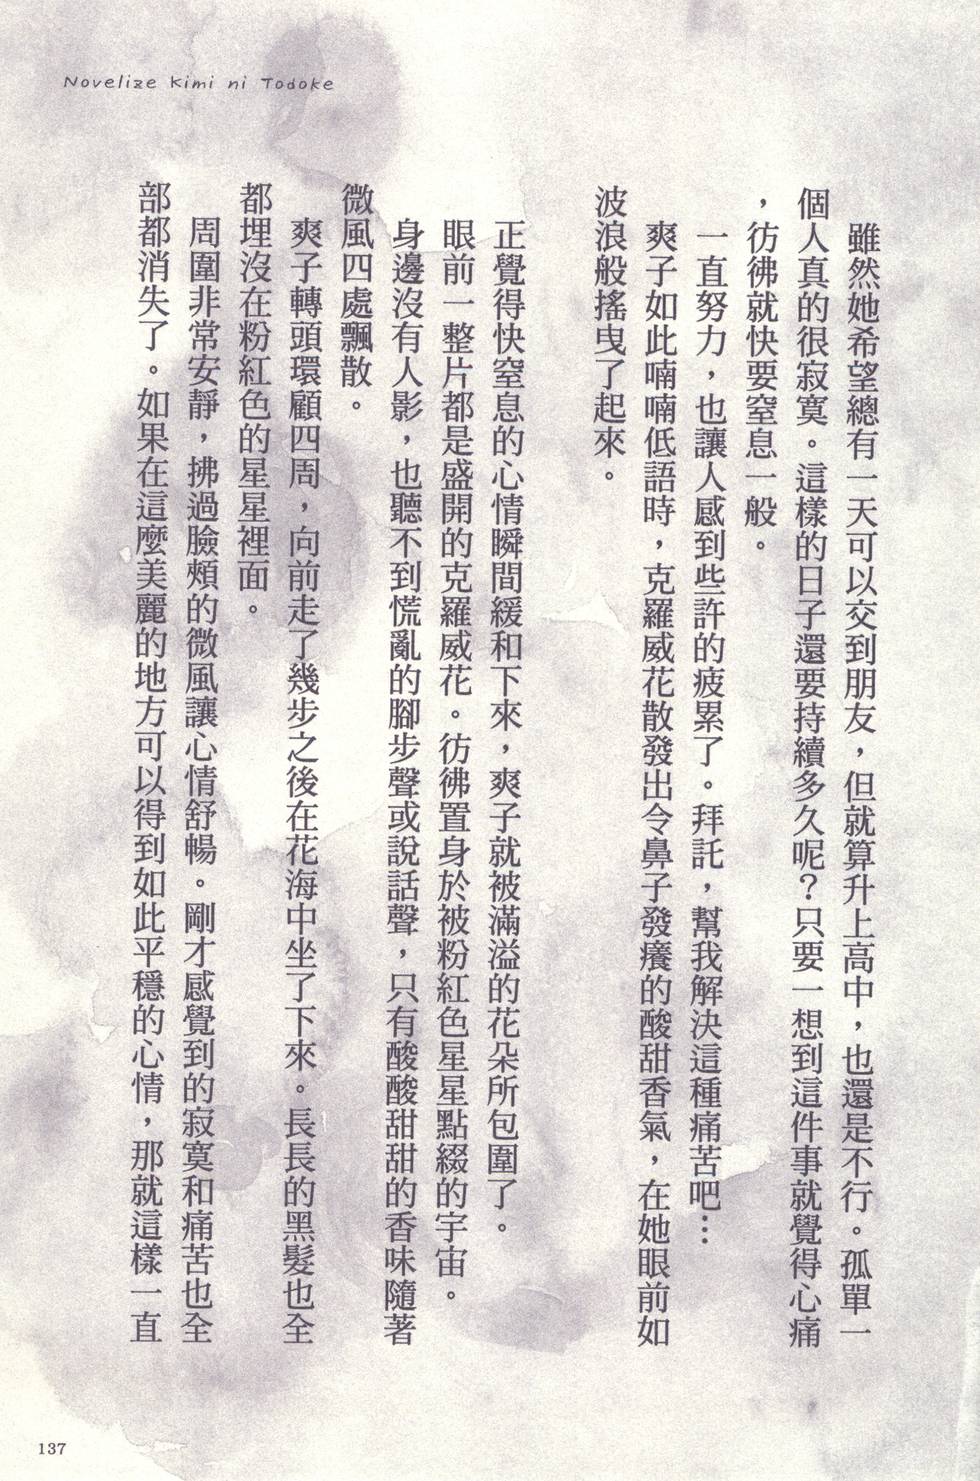 Novelize Kimi ni Todoke
雖然她希望總有一天可以交到朋友，但就算升上高中，也還是不行。孤單一
個人真的很寂寞。這樣的日子還要持續多久呢？只要一想到這件事就覺得心痛
，彷彿就快要窒息一般。
一直努力，也讓人感到些許的疲累了。拜託，幫我解決這種痛苦吧…
爽子如此喃喃低語時，克羅威花散發出令鼻子發癢的酸甜香氣，在她眼前如
波浪般搖曳了起來。
正覺得快窒息的心情瞬間緩和下來，爽子就被滿溢的花朵所包圍了。
眼前一整片都是盛開的克羅威花。彷彿置身於被粉紅色星星點綴的宇宙。
身邊沒有人影，也聽不到慌亂的腳步聲或說話聲，只有酸酸甜甜的香味隨著
微風四處飄散。
爽子轉頭環顧四周，向前走了幾步之後在花海中坐了下來。長長的黑髮也全
都埋沒在粉紅色的星星裡面。
周圍非常安靜，拂過臉頰的微風讓心情舒暢。剛才感覺到的寂寞和痛苦也全
部都消失了。如果在這麼美麗的地方可以得到如此平穩的心情，那就這樣一直
137